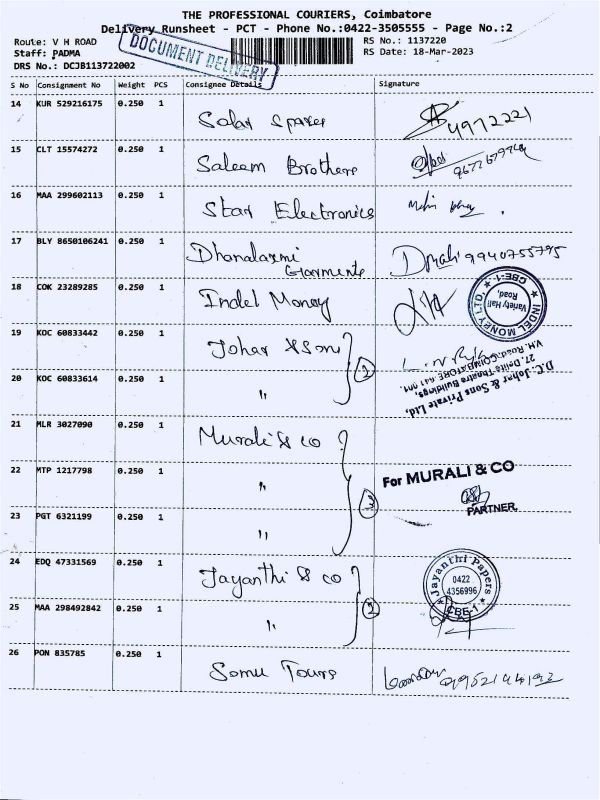 THE PROFESSIONAL COURIERS, Coimbatore
Delivery Runsheet - PCT - Phone No.:0422-3505555 - Page No.:2
Route: V H ROAD RS No.: 1137220
Staff: PADMA RS Date: 18-Mar-2023
DRS No.: DCJB113722002
DOCUMENT DELIVERY
S No Consignment No Weight PCS Consignee Details Signature
14 KUR 529216175 0.250 1 Solar Spares
15 CLT 15574272 0.250 1 Saleem Brothers
16 MAA 299602113 0.250 1 Star Electronics
17 BLY 8650106241 0.250 1 Dhanalaxmi 9940755795
Garments
18 COK 23289285 0.250 1 Indel Money
INDEL MONEY (LTD)
Variety Hall
Road,
CBE-1
19 KOC 60833442 0.250 1 Johar & Sons
2
20 KOC 60833614 0.250 1 "
D.C. Johar & Sons Private Ltd,
27, Delite Theatre Buildings,
V.H. Road, COIMBATORE-641 001
21 MLR 3027090 0.250 1 Murali & co
22 MTP 1217798 0.250 1 "
For MURALI & CO
3
PARTNER
23 PGT 6321199 0.250 1 "
24 EDQ 47331569 0.250 1 Jayanthi & co
Jayanthi Papers
0422
4356996
CBE-1
25 MAA 298492842 0.250 1 "
2
26 PON 835785 0.250 1 Somu Tours